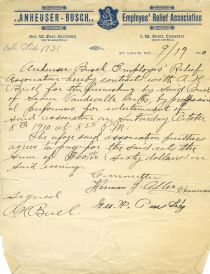 "ANHEUSER-BUSCH" Employes' Relief Association
Geo. W. Beer, Secretary, J. W. Beert, Treasurer
ST. LOUIS, MO., 9/19 0
Bell Sid 1731
Anheuser Busch Employes' Relief
Association hereby contracts with A K
Buel for the furnishing by said Buel
of Seven Vaudeville acts, by
at purposes for entertainment of
said association on Saturday October
8th 1910 at 8 15 P.M.
The afore said association further
agrees to pay for the said acts the
sum of $60.00 (Sixty dollars) on
said evening.
Committee
Herman J. Alber Chairman
Signed Geo. W. Secty
A K Buel